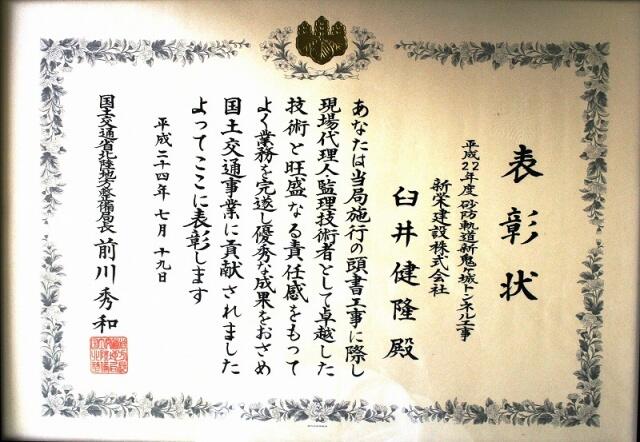 表彰状
平成22年度 砂防軌道新鬼ヶ城トンネル工事
新栄建設株式会社
臼井健隆殿
あなたは当局施行の頭書工事に際し
現場代理人・監理技術者として卓越した
技術と旺盛なる責任感をもって
よく業務を完遂し優秀な成果をおさめ
国土交通事業に貢献されました
よってここに表彰します
平成二十四年七月十九日
国土交通省北陸地方整備局長 前川秀和